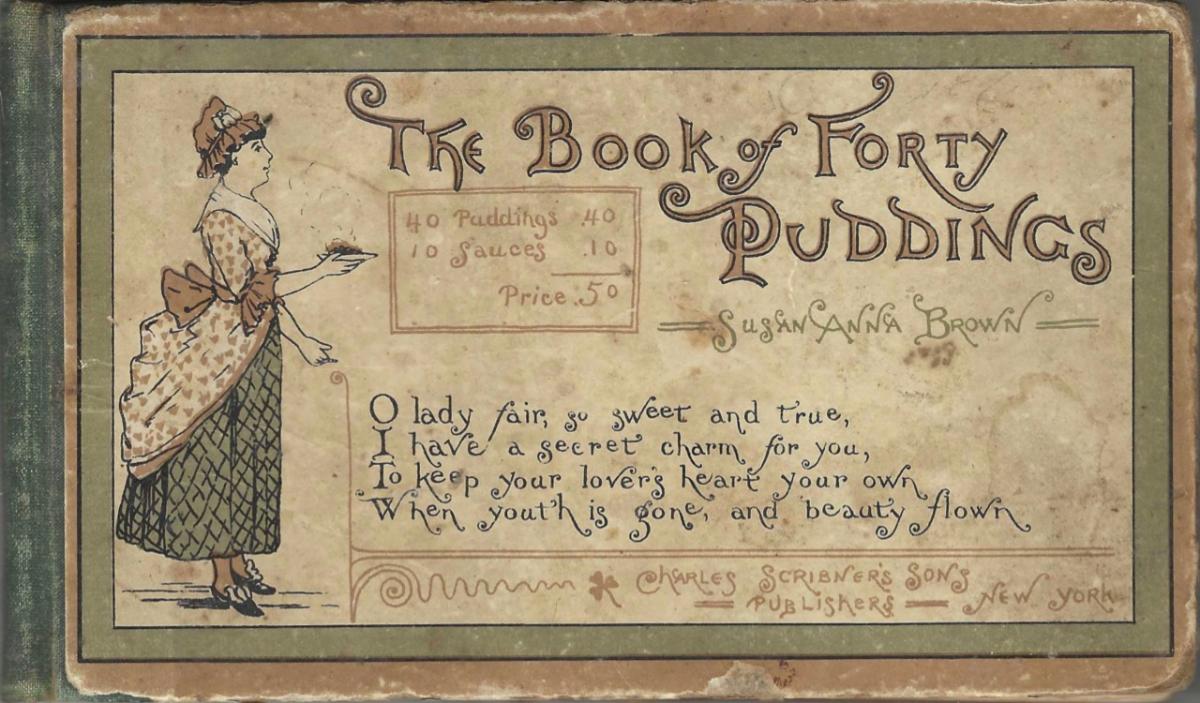 The Book of Forty
Puddings
40 Puddings .40
10 Sauces .10
Price .50
Susan Anna Brown
O lady fair, so sweet and true,
I have a secret charm for you,
To keep your lover's heart your own
When youth is gone, and beauty flown
Charles Scribner's Sons
Publishers New York